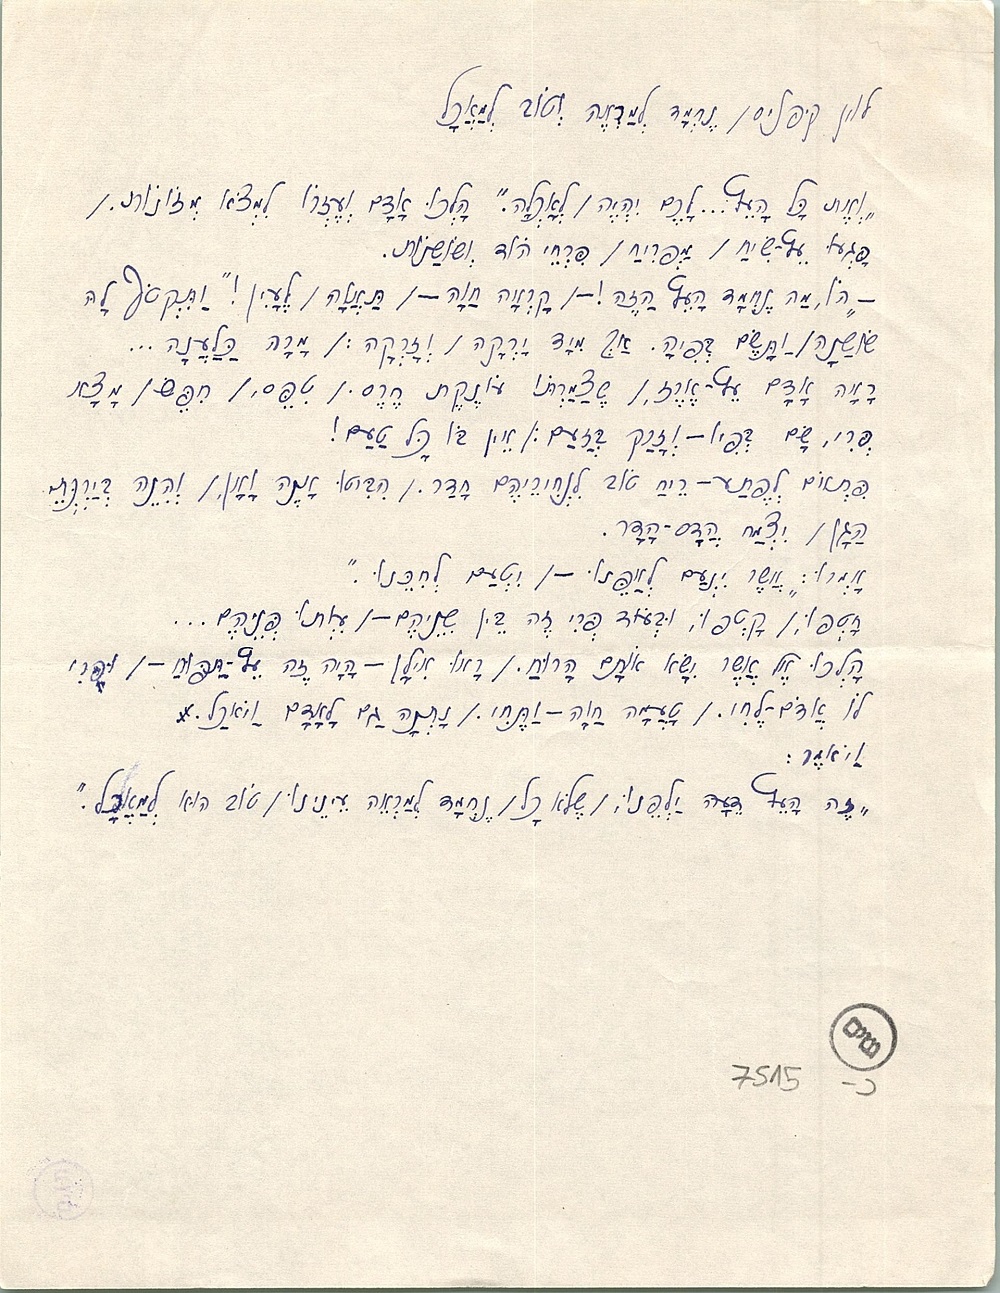 לוין קיפניס / נֶחְמָד לְמַרְאֶה וְטוֹב לְמַאֲכָל
„וְאֶת כָּל הָעֵץ... לָכֶם יִהְיֶה / לְאָכְלָה.” הָלְכוּ אָדָם וְעֶזְרוֹ לִמְצֹא מְזוֹנוֹת. /
פָּגְעוּ עֵץ-שִׂיחַ / מַפְרִיחַ / פִּרְחֵי הוֹד וְשׁוֹשַׁנּוֹת.
– „הוֹ, מַה נֶּחְמָד הָעֵץ הַזֶּה! –/ קָרְאָה חַוָּה –/ תַּאֲוָה / לָעַיִן!” וַתִּקְטֹף לָהּ
שׁוֹשַׁנָּה / וַתָּשֶׂם בְּפִיהָ. אַךְ מִיָּד יָרְקָה / וְזָרְקָה: / מָרָה כַּלַּעֲנָה...
רָאָה אָדָם עֵץ-אֶרֶז, / שֶׁצַּמַּרְתּוֹ עוֹנֶקֶת חֶרֶס. / טִפֵּס, / חִפֵּשׂ / מָצָא
פְּרִי, שָׂם בְּפִיו – וְזָרַק בְּזַעַם: / אֵין בּוֹ כָּל טַעַם!
פִּתְאוֹם לְפֶתַע – רֵיחַ טוֹב לִנְחִירֵיהֶם חָדַר. / הִבִּיטוּ אָנֶה וָאָן, / וְהִנֵּה בְּיַרְכְּתֵי
הַגָּן / יִצְמַח הֲדַס-הָדָר.
אָמְרוּ: „אֲשֶׁר יִנְעַם לְאַפֵּנוּ –/ יִטְעַם לְחִכֵּנוּ.”
חָטְפוּ, / קָטְפוּ, וּבְעוֹד פְּרִי זֶה בֵּין שִׁנֵּיהֶם –/ עִוְּתוּ פְּנֵיהֶם...
הָלְכוּ אֶל אֲשֶׁר נָשָׂא אוֹתָם הָרוּחַ. / רָאוּ אִילָן – הָיָה זֶה עֵץ-תַּפּוּחַ –/ וּפְרִי
לוֹ אֲדֹם-לֶחִי. / טָעֲמָה חַוָּה – וַתְּחִי. / נָתְנָה גַם לָאָדָם וַיֹּאכַל.
וַיֹּאמֶר:
„זֶה הָעֵץ דֵּעָה יַלְּפֵנוּ, / שֶׁלֹּא כָל / נֶחְמָד לְמַרְאֵה עֵינֵינוּ / טוֹב הוּא לְמַאֲכָל.”
7515 כ-